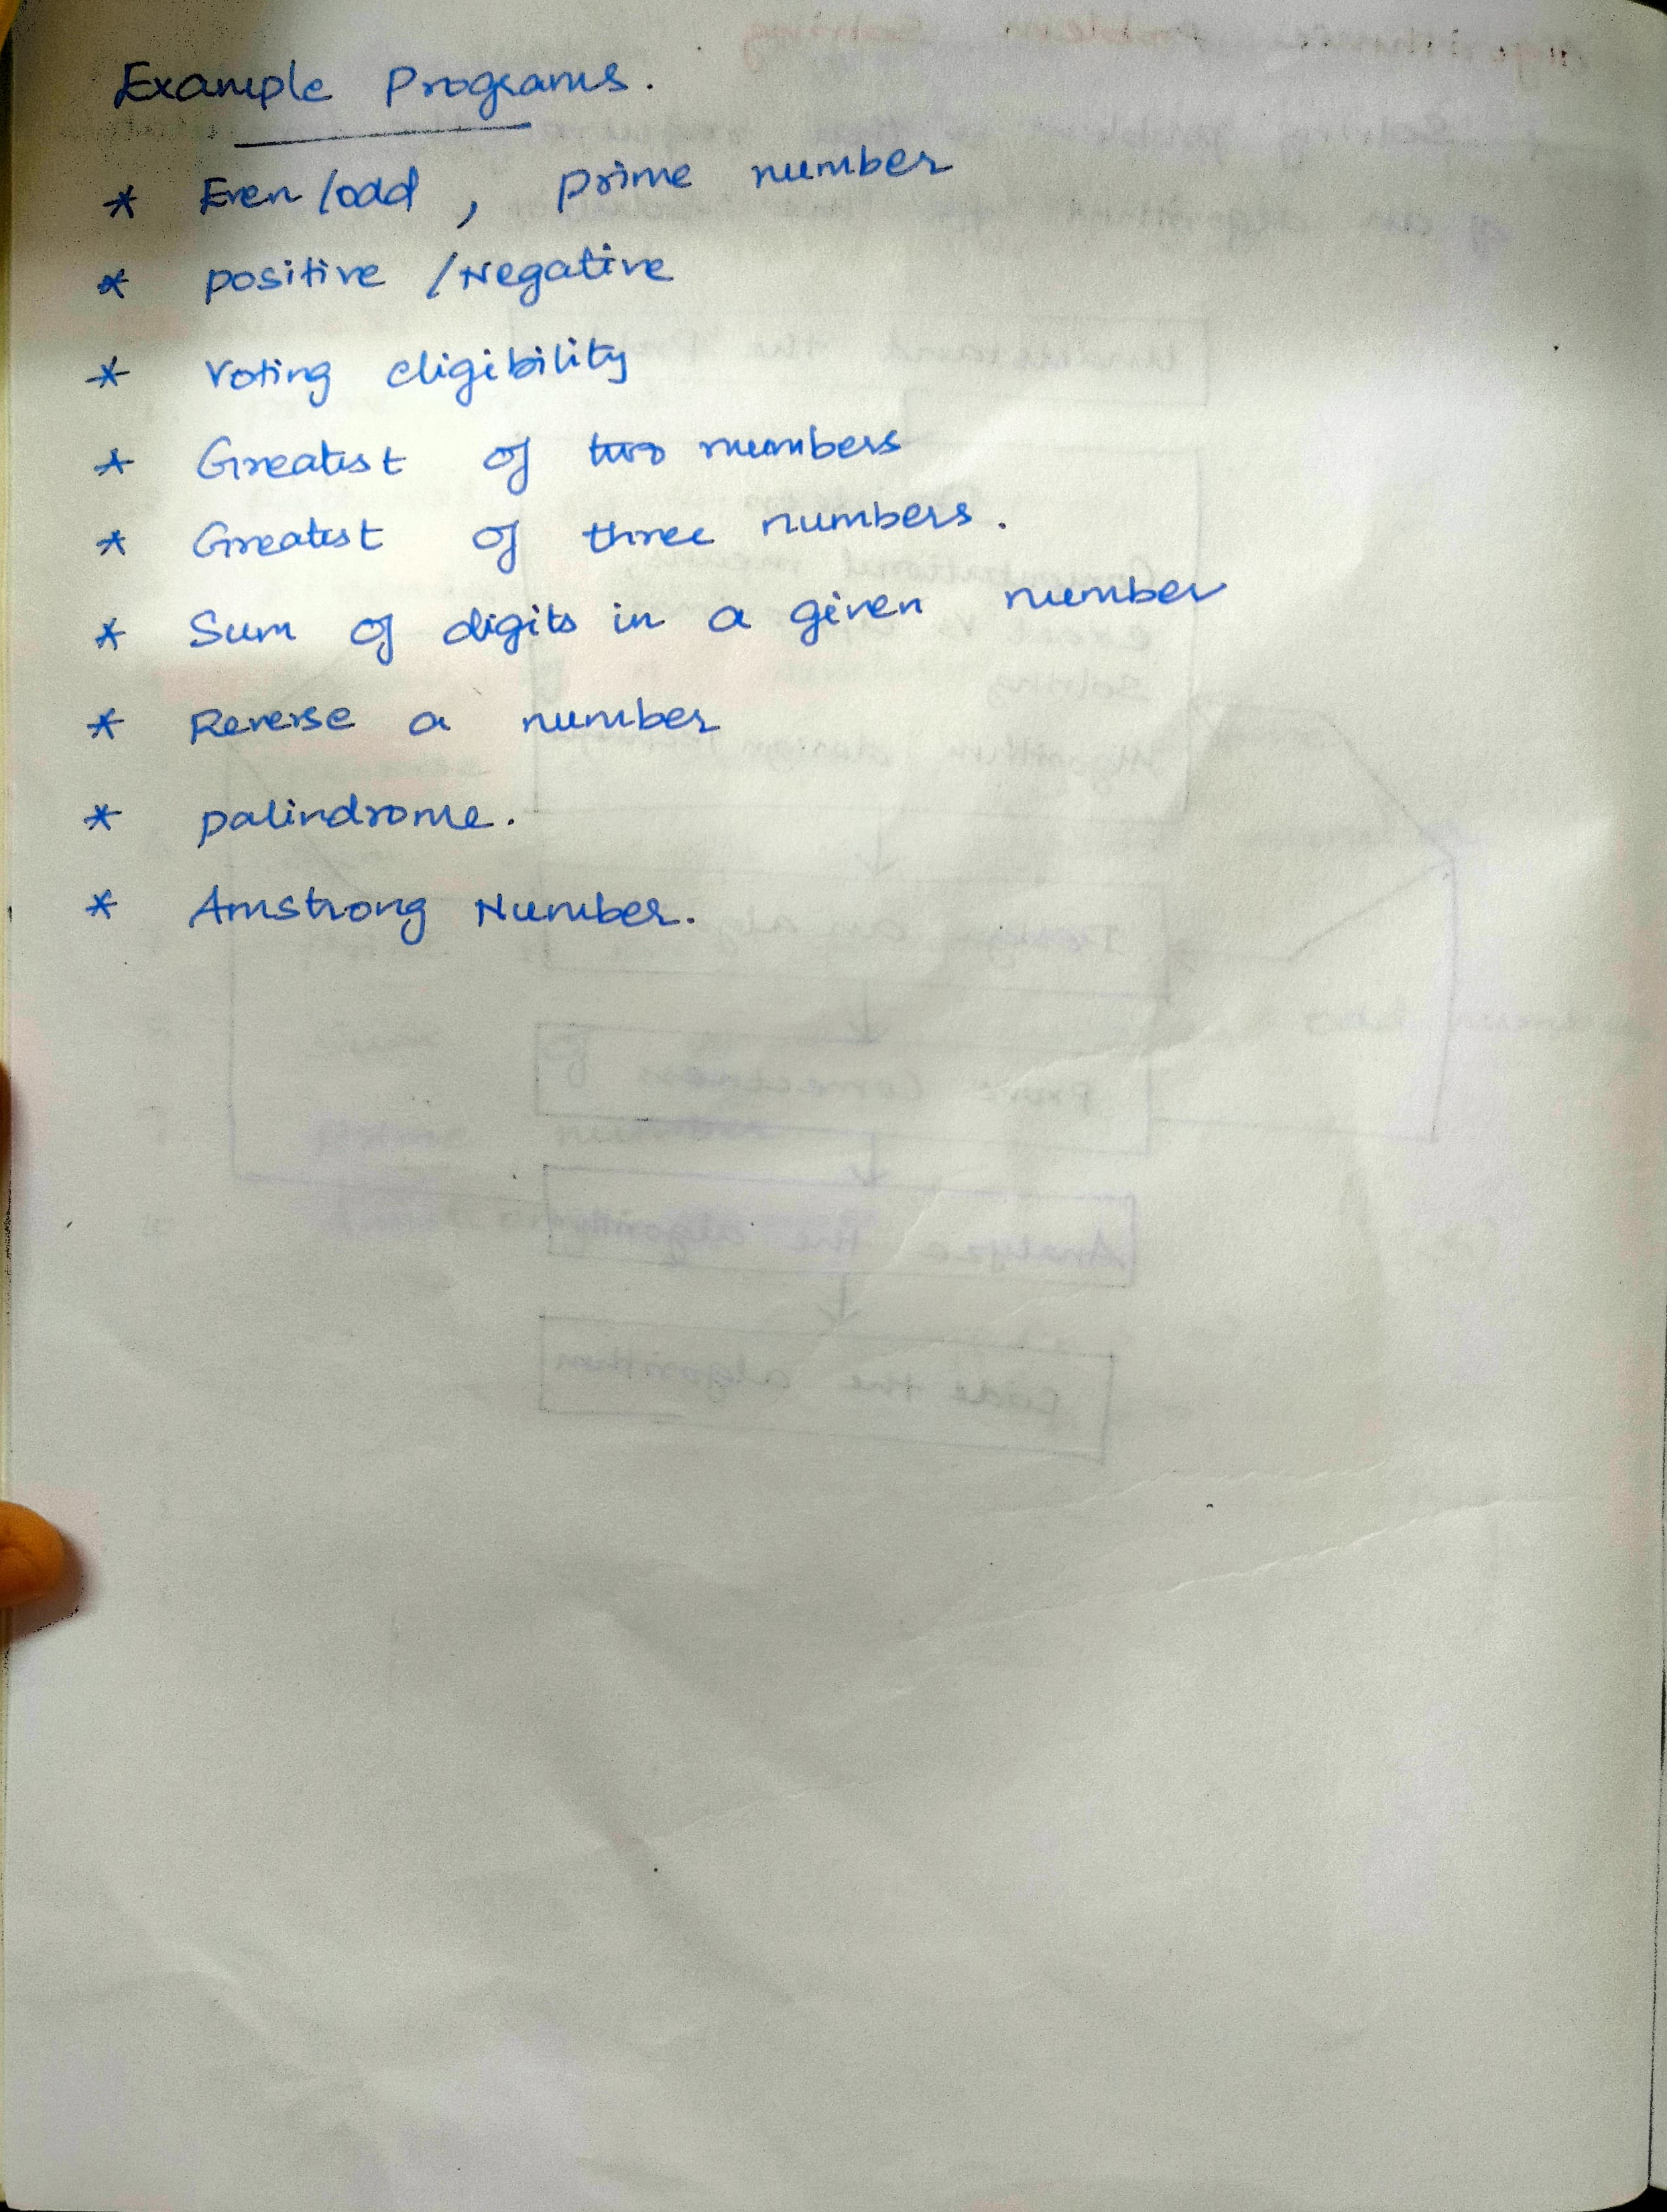 Example Programs.
* Even/odd, prime number
* positive/Negative
* Voting eligibility
* Greatest of two numbers
* Greatest of three numbers.
* Sum of digits in a given number
* Reverse a number
* palindrome.
* Amstrong Number.